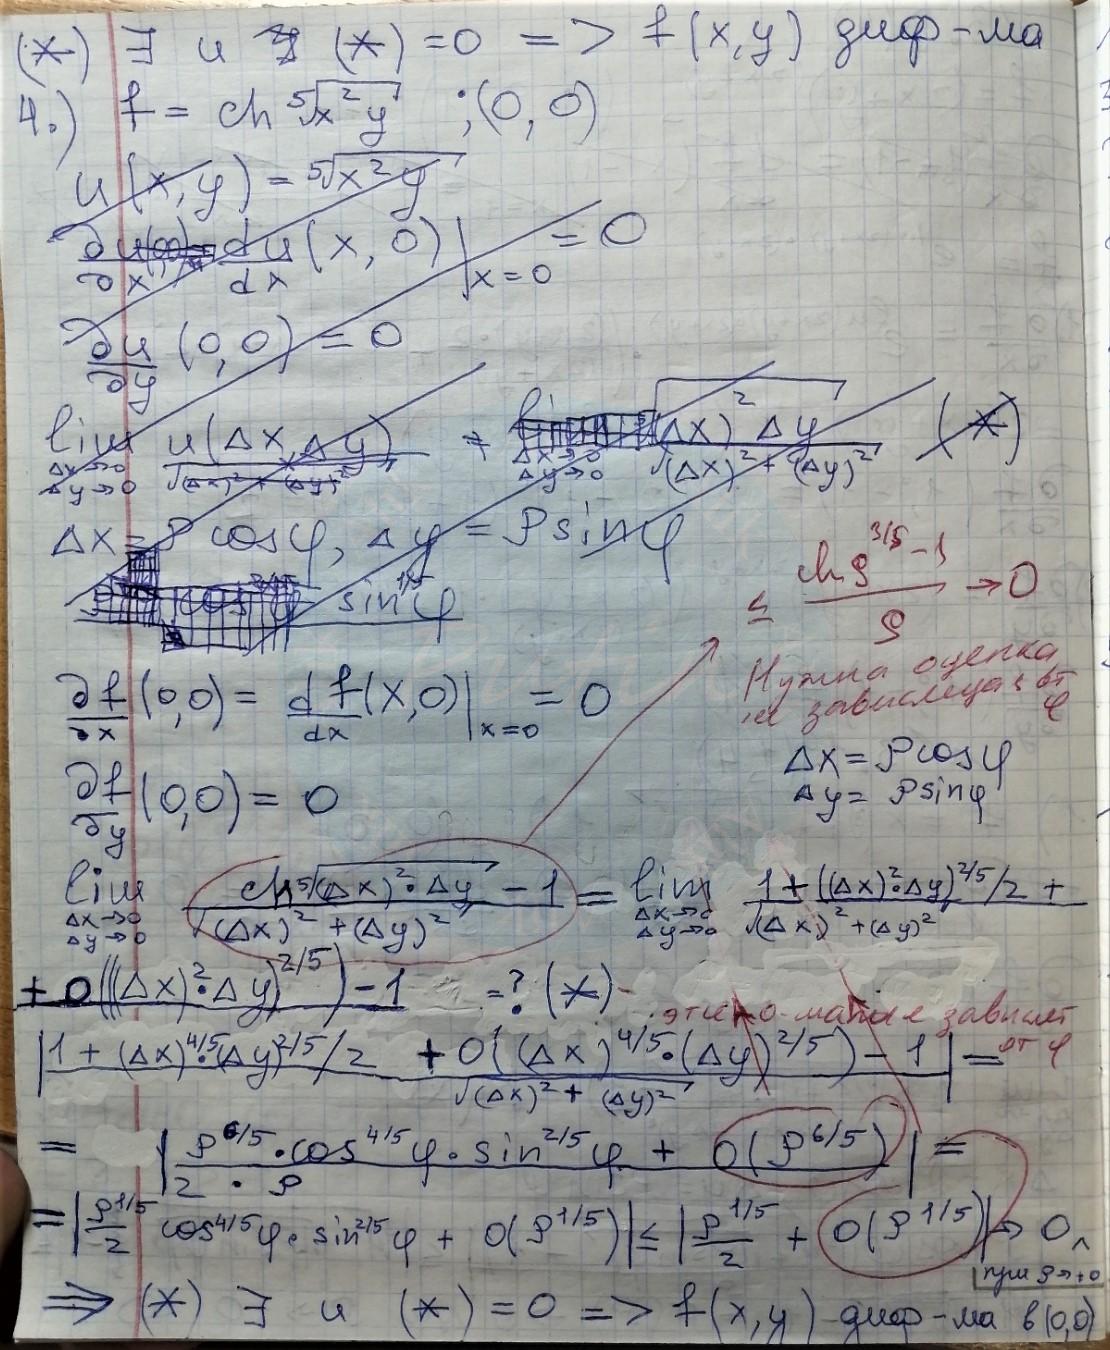 (*) ∃ и (*) = 0 => f(x,y) диф-ма
4.) f = ch ⁵√(x²y) ; (0,0)
u(x,y) = ⁵√(x²y)
∂u/∂x (0,0) = du/dx (x,0)|x=0 = 0
∂u/∂y (0,0) = 0
lim Δx→0 Δy→0 u(Δx,Δy)/√((Δx)²+(Δy)²) lim Δx→0 Δy→0 (Δx)²Δy/√((Δx)²+(Δy)²) (*)
Δx = ρ cosφ, Δy = ρ sinφ
sin^(1/5)φ
≤ (ch ρ^(3/5) - 1)/ρ → 0
Нужна оценка
не зависящая от
φ
∂f/∂x (0,0) = df/dx (x,0)|x=0 = 0
Δx = ρcosφ
Δy = ρsinφ
∂f/∂y (0,0) = 0
lim Δx→0 Δy→0 (ch ⁵√((Δx)²·Δy) - 1)/√((Δx)²+(Δy)²) = lim Δx→0 Δy→0 1 + ((Δx)²·Δy)^(2/5)/2 + /√((Δx)²+(Δy)²)
+ o(((Δx)²·Δy)^(2/5)) - 1 =? (*)
эти о-малые зависят
от φ
|1 + (Δx)^(4/5)·(Δy)^(2/5)/2 + o((Δx)^(4/5)·(Δy)^(2/5)) - 1 / √((Δx)²+(Δy)²)| =
= |ρ^(6/5)·cos^(4/5)φ·sin^(2/5)φ + o(ρ^(6/5)) / 2·ρ| =
= |ρ^(1/5)/2 cos^(4/5)φ·sin^(2/5)φ + o(ρ^(1/5))| ≤ |ρ^(1/5)/2 + o(ρ^(1/5))| → 0,
при ρ→+0
=> (*) ∃ и (*) = 0 => f(x,y) - диф-ма в (0,0)